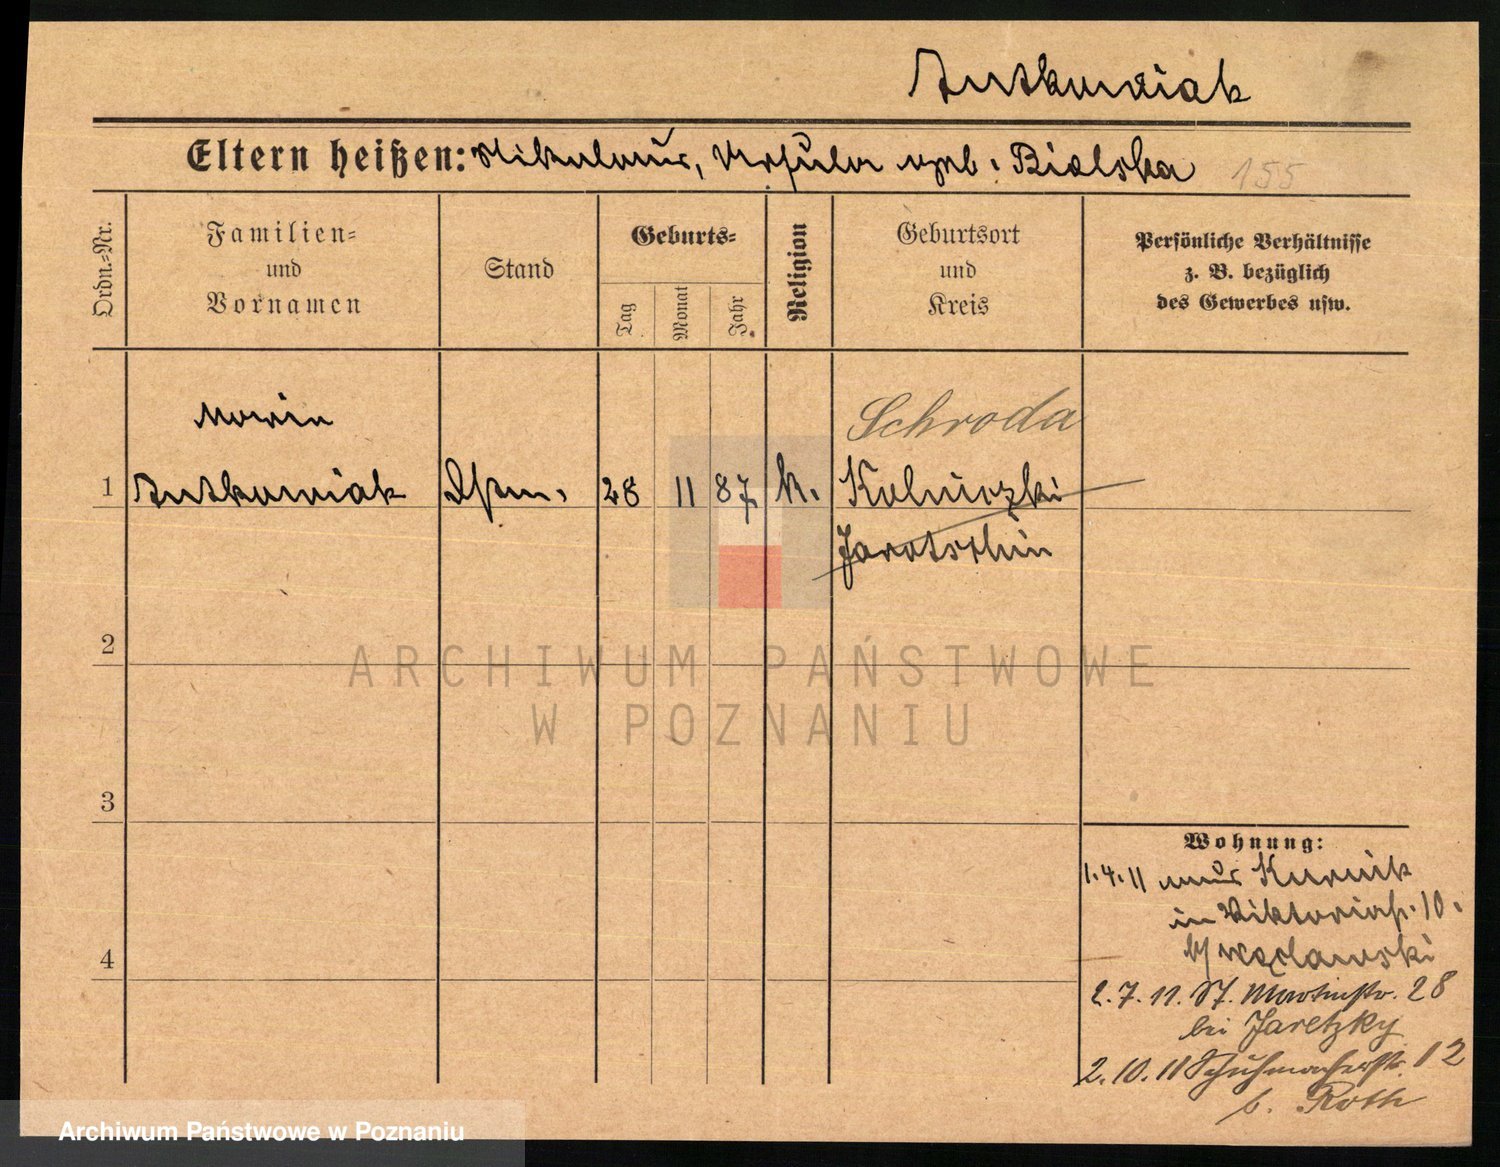 Antkowiak
Eltern heißen: Nikolaus, Ursula geb. Bialska 155
Ordn.-Nr.
Familien-
und
Vornamen
Stand
Geburts-
Tag
Monat
Jahr
Religion
Geburtsort
und
Kreis
Persönliche Verhältnisse
z. B. bezüglich
des Gewerbes usw.
Maria
Schroda
1 Antkowiak 28 11 87 k. Kolniczki
Jarotschin
2
ARCHIWUM PAŃSTWOWE
W POZNANIU
3
Wohnung:
1.4.11 aus Kurnik
in Viktoriastr. 10.
b/ Węclawski
4
2.7.11. St. Martinstr. 28
bei Jaretzky
2.10.11 Schuhmacherstr. 12
b. Roth
Archiwum Państwowe w Poznaniu